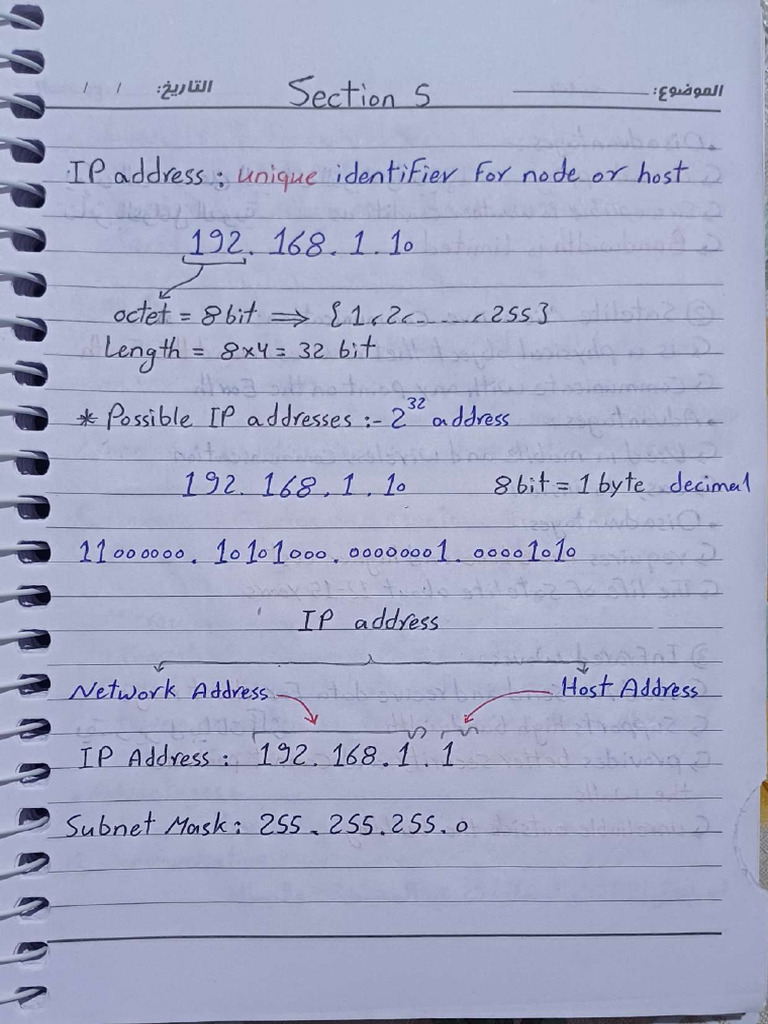 الموضوع: التاريخ: / /
Section 5
IP address : unique identifier for node or host
192. 168. 1. 10
octet = 8 bit ⇒ {1,2, ......, 255}
Length = 8×4 = 32 bit
* Possible IP addresses :- 2^32 address
192. 168. 1. 10 8 bit = 1 byte decimal
11000000. 10101000. 00000001. 00001010
IP address
Network Address Host Address
IP Address : 192. 168. 1. 1
Subnet Mask : 255. 255. 255. 0